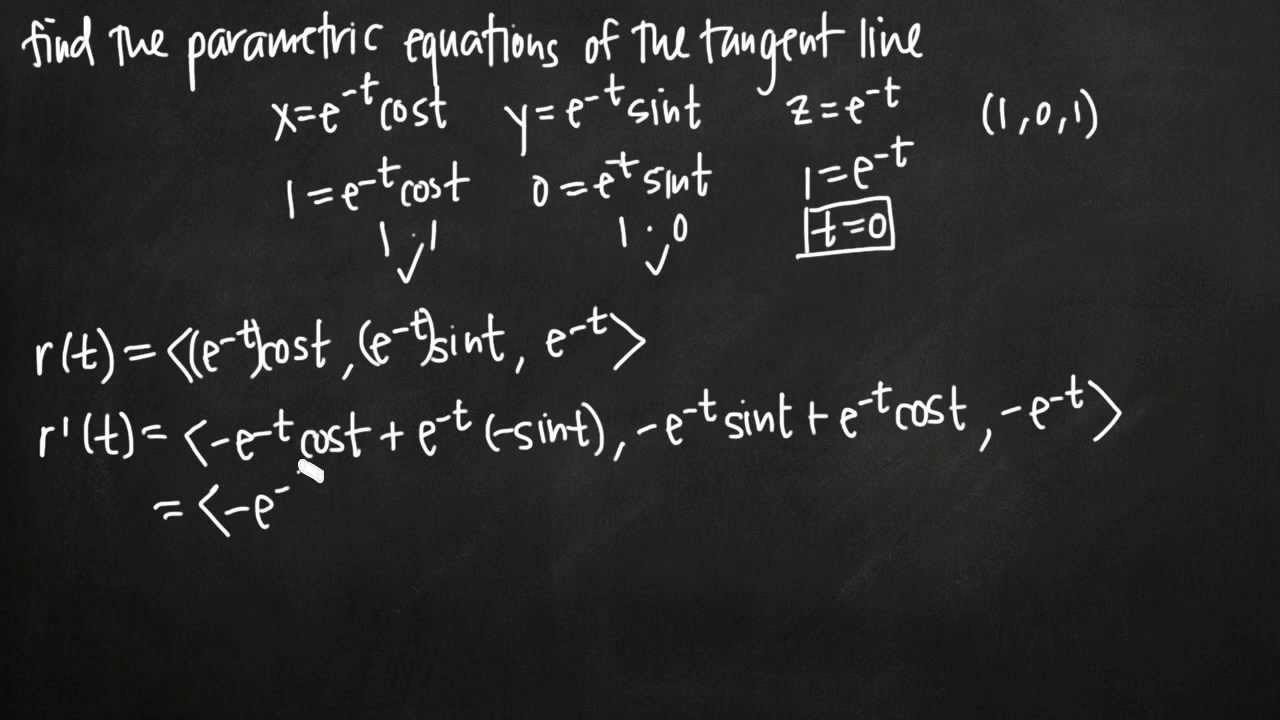 find the parametric equations of the tangent line
x=e^-t cost y=e^-t sint z=e^-t (1,0,1)
1=e^-t cost 0=e^-t sint 1=e^-t
1·1 1·0 t=0
✓ ✓
r(t)=⟨(e^-t)cost,(e^-t)sint, e^-t⟩
r'(t)=⟨-e^-t cost+e^-t(-sint),-e^-t sint+e^-t cost,-e^-t⟩
=⟨-e^-